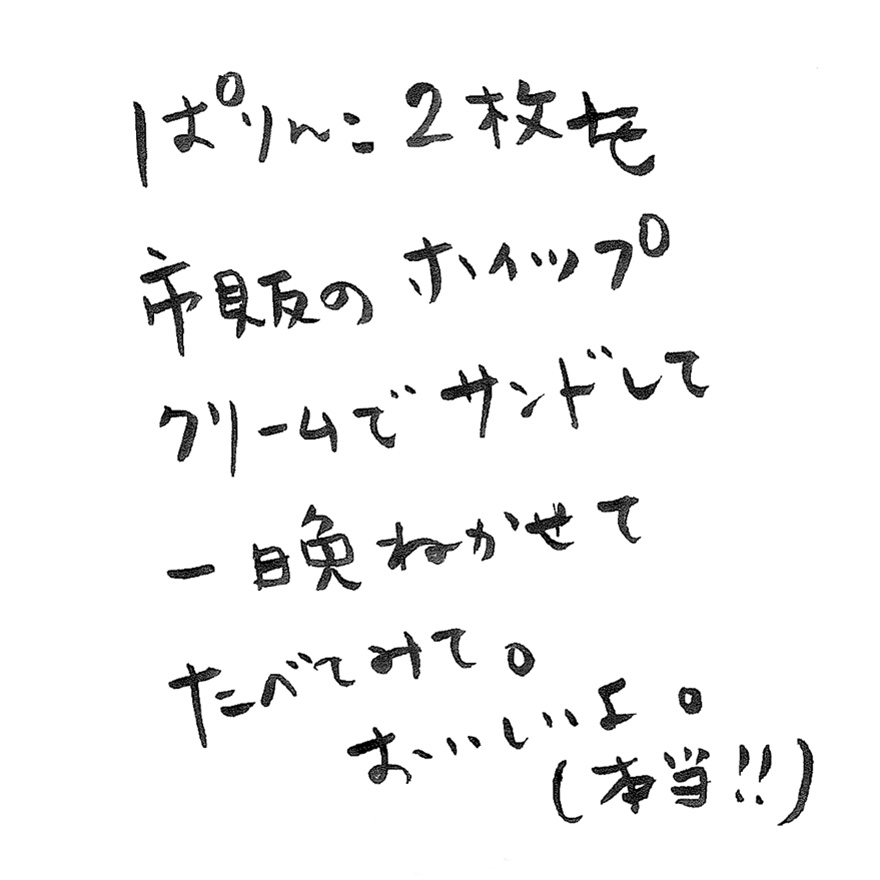 ぱりんこ2枚を
市販のホイップ
クリームでサンドして
一晩ねかせて
たべてみて。
おいしいよ。
(本当!!)